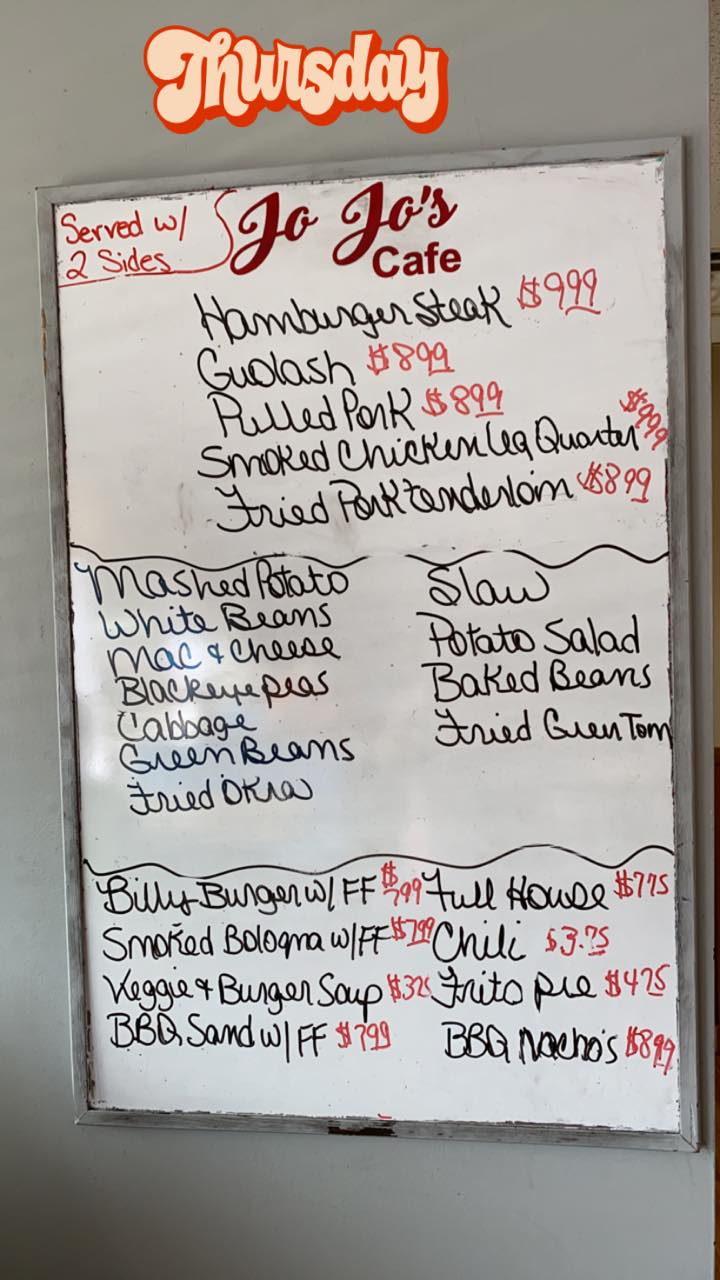 Thursday
Served w/
2 Sides
Jo Jo's
Cafe
Hamburger Steak $999
Guolash $899
Pulled Pork $899
Smoked Chicken Leg Quarter $999
Fried Pork tenderloin $899
Mashed Potato
White Beans
Mac & Cheese
Blackeye peas
Cabbage
Green Beans
Fried Okra
Slaw
Potato Salad
Baked Beans
Fried Green Tom
Billy Burger w/ FF $799
Smoked Bologna w/FF $799
Veggie & Burger Soup $325
BBQ Sand w/ FF $799
Full House $775
Chili $3.75
Frito pie $475
BBQ Nacho's $899